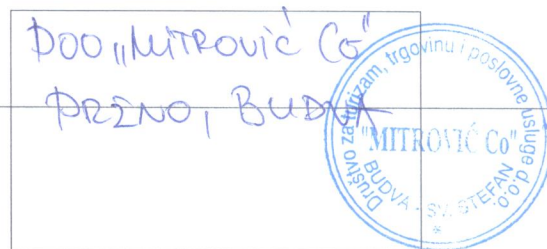 DOO „MITROVIĆ Co"
PRŽNO, BUDVA
Društvo za turizam, trgovinu i poslovne usluge d.o.o.
"MITROVIĆ Co"
BUDVA - SV. STEFAN